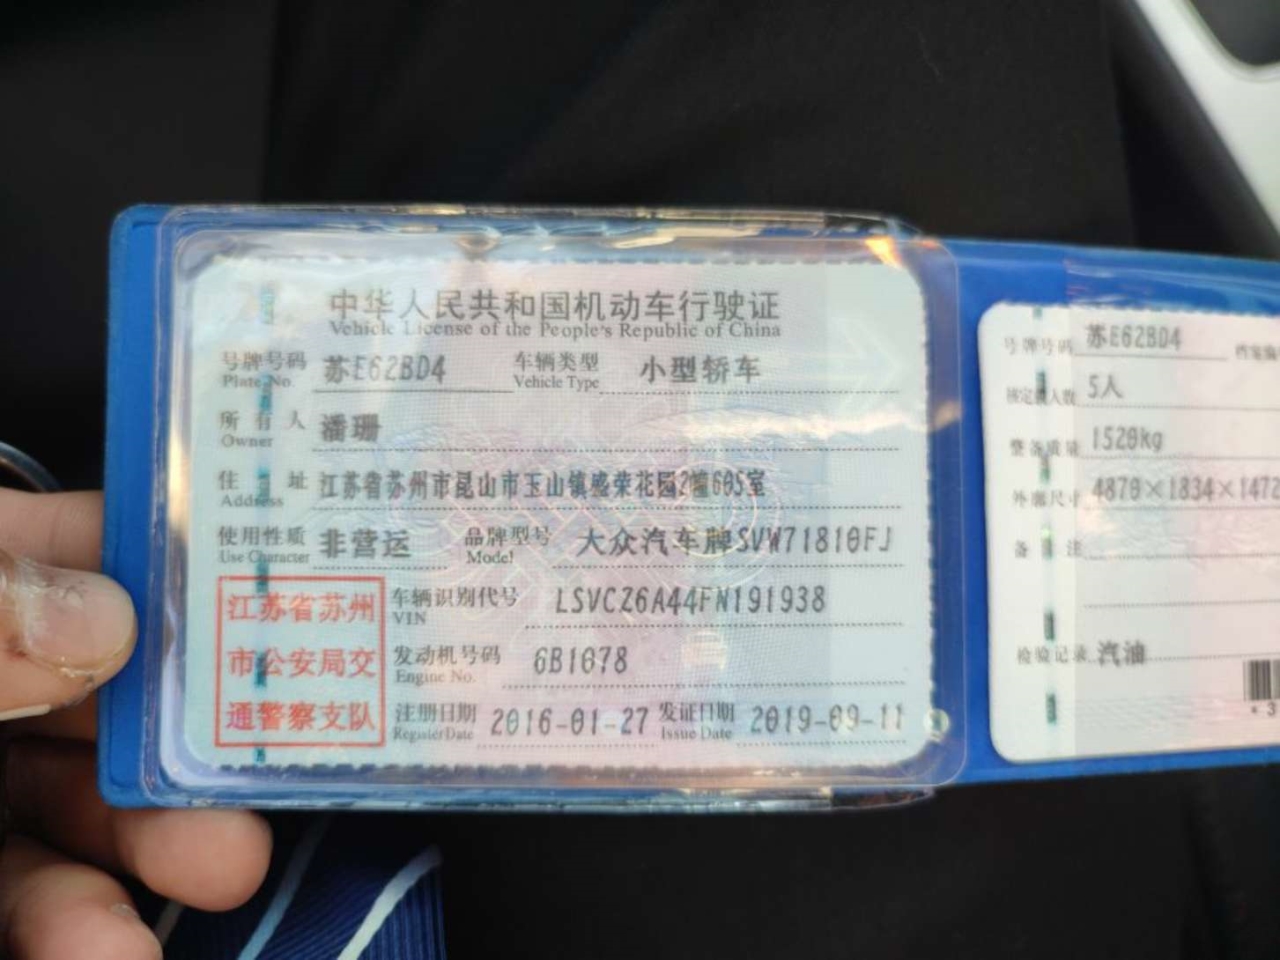 中华人民共和国机动车行驶证
Vehicle License of the People's Republic of China
号牌号码 苏E62BD4 车辆类型 小型轿车
Plate No. Vehicle Type
所有人 潘珊
Owner
住址 江苏省苏州市昆山市玉山镇盛荣花园2幢605室
Address
使用性质 非营运 品牌型号 大众汽车牌SVW71810FJ
Use Character Model
江苏省苏州
市公安局交
通警察支队
车辆识别代号 LSVCZ6A44FN191938
VIN
发动机号码 6B1078
Engine No.
注册日期 2016-01-27 发证日期 2019-09-11
Register Date Issue Date
号牌号码 苏E62BD4
核定载人数 5人
整备质量 1520kg
外廓尺寸 4870×1834×1472
备注
检验记录 汽油